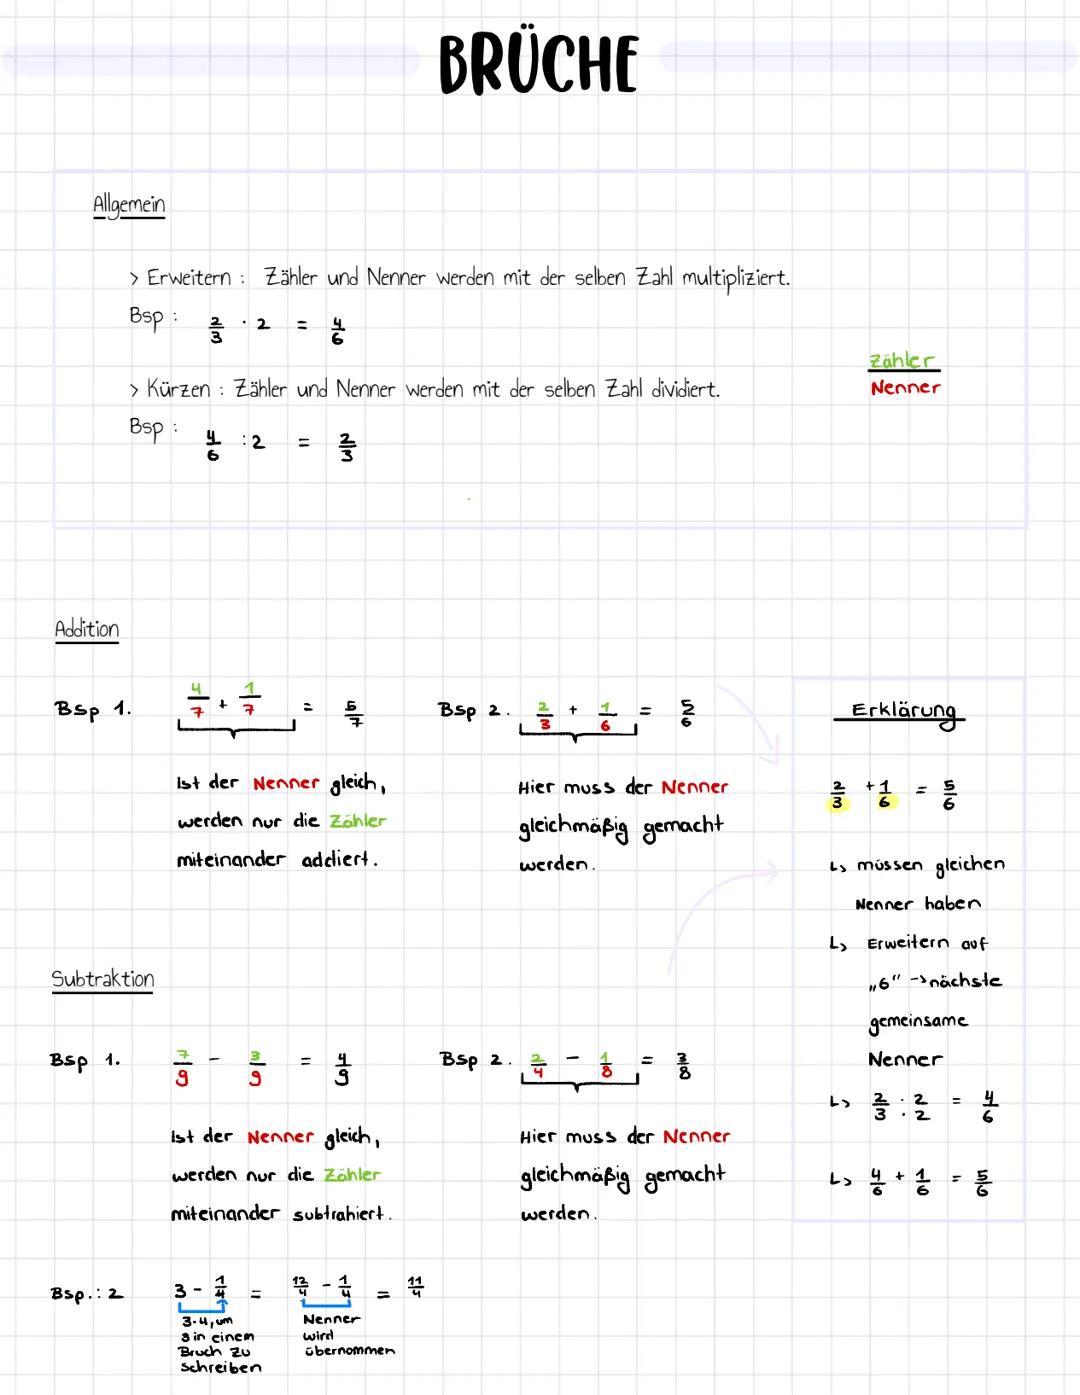 BRÜCHE
Allgemein
> Erweitern : Zähler und Nenner werden mit der selben Zahl multipliziert.
Bsp : 2/3 · 2 = 4/6
> Kürzen : Zähler und Nenner werden mit der selben Zahl dividiert.
Bsp : 4/6 : 2 = 2/3
Zähler
Nenner
Addition
Bsp 1. 4/7 + 1/7 = 5/7
Ist der Nenner gleich,
werden nur die Zähler
miteinander addiert.
Bsp 2. 2/3 + 1/6 = 5/6
Hier muss der Nenner
gleichmäßig gemacht
werden.
Erklärung
2/3 + 1/6 = 5/6
↳ müssen gleichen
Nenner haben
↳ Erweitern auf
„6" → nächste
gemeinsame
Nenner
↳ 2/3 · 2/2 = 4/6
↳ 4/6 + 1/6 = 5/6
Subtraktion
Bsp 1. 7/9 - 3/9 = 4/9
Ist der Nenner gleich,
werden nur die Zähler
miteinander subtrahiert.
Bsp 2. 2/4 - 1/8 = 3/8
Hier muss der Nenner
gleichmäßig gemacht
werden.
Bsp.: 2 3 - 1/4 = 12/4 - 1/4 = 11/4
3·4, um
3 in einem
Bruch zu
schreiben
Nenner
wird
übernommen